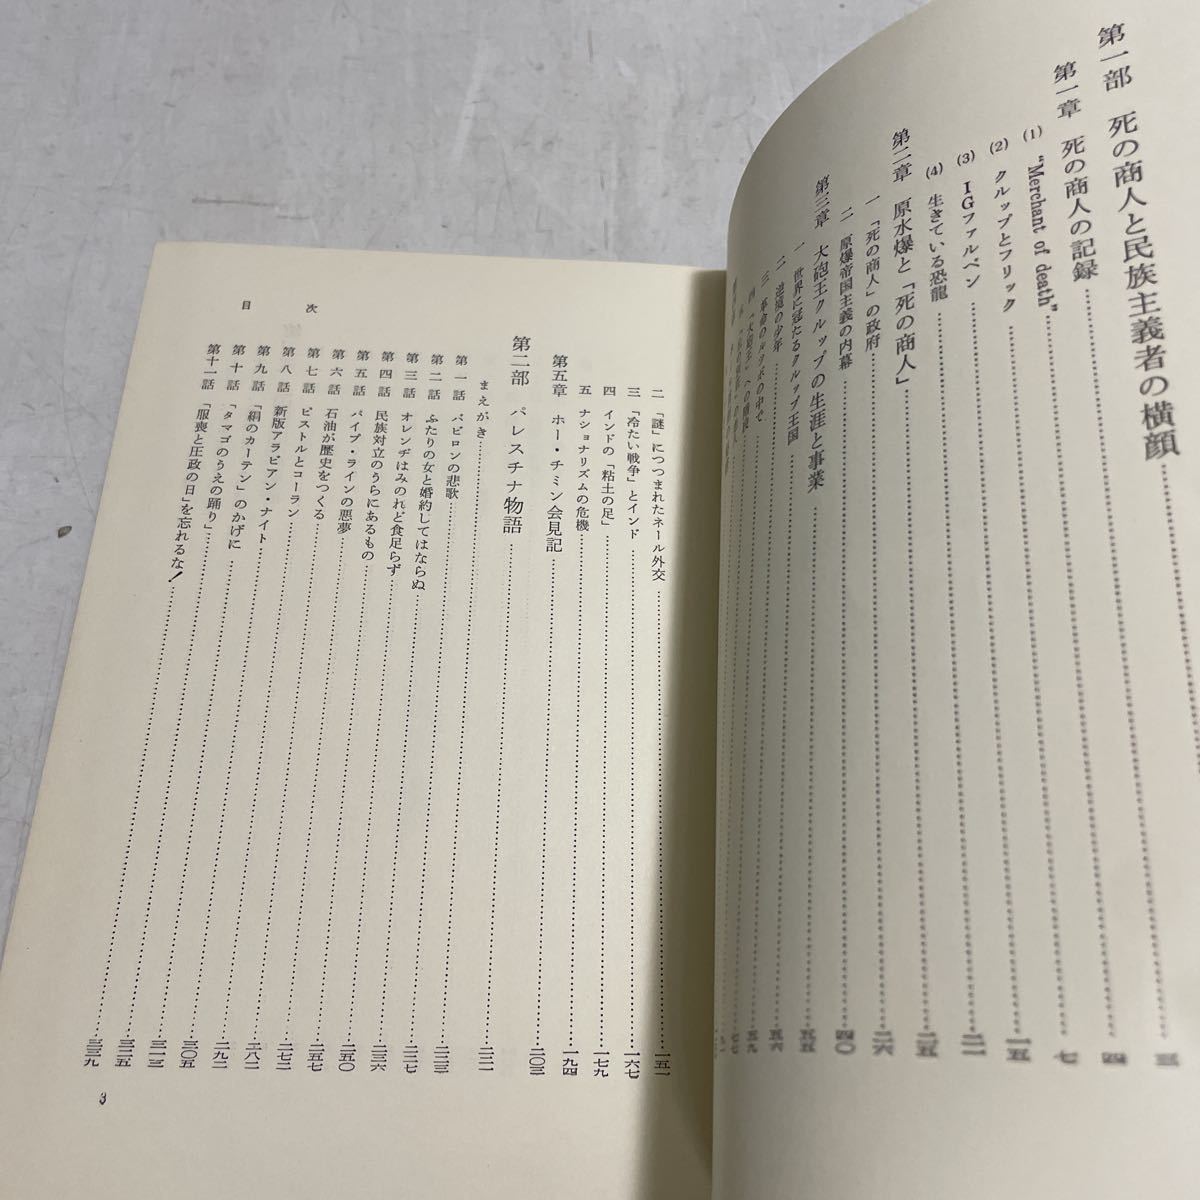 第一部 死の商人と民族主義者の横顔……三
第一章 死の商人の記録……四
(1) "Merchant of death"……七
(2) クルップとフリック……一五
(3) IGファルベン……二一
(4) 生きている恐龍……二五
第二章 原水爆と「死の商人」……二六
一 「死の商人」の政府
二 原爆帝国主義の内幕……四〇
第三章 大砲王クルップの生涯と事業……五五
一 世界に冠たるクルップ王国……五五
二 逆境の少年……五六
三 革命のルツボの中で……五九
四 「大砲王」への
二 「謎」につつまれたネール外交……一五一
三 「冷たい戦争」とインド……一六七
四 インドの「粘土の足」……一七九
五 ナショナリズムの危機……一九四
第五章 ホー・チミン会見記……二〇三
第二部 パレスチナ物語
まえがき……二二一
第一話 バビロンの悲歌……二二三
第二話 ふたりの女と婚約してはならぬ……二二七
第三話 オレンヂはみのれど食足らず……二三六
第四話 民族対立のうらにあるもの……二五〇
第五話 パイプ・ラインの悪夢……二五七
第六話 石油が歴史をつくる……二七二
第七話 ピストルとコーラン……二八二
第八話 新版アラビアン・ナイト……二九二
第九話 「絹のカーテン」のかげに……三〇五
第十話 「タマゴのうえの踊り」……三一三
第十一話 「服喪と圧政の日」を忘れるな!……三二五
三三九
目次
3